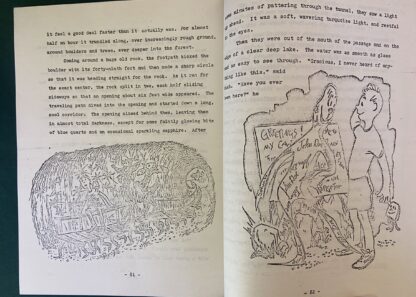 it feel a good deal faster than it actually was. For almost
half an hour it trundled along, over increasingly rough ground,
around boulders and trees, ever deeper into the forest.
Coming around a huge old rock, the footpath kicked the
boulder with its forty-ninth foot and then made a sharp circle
so that it was heading straight for the rock. As it ran for
the exact center, the rock split in two, each half sliding
sideways so that an opening about six feet wide appeared. The
traveling path slued into the opening and started down a long,
cool corridor. The opening slid behind them, leaving them
in almost total darkness, except for some faintly glowing bits
of blue quartz and an occasional sparkling sapphire. After
- 81 -
minutes of pattering through the tunnel, they saw a light
ahead. It was a soft, wavering turquoise light, and restful
the eyes.
Then they were out of the passage and on the
of a clear deep lake. The water was as smooth as glass
so easy to see through. "Gracious, I never heard of any-
like this," said
"Have you ever
here?" he
GREETINGS!
- 82 -